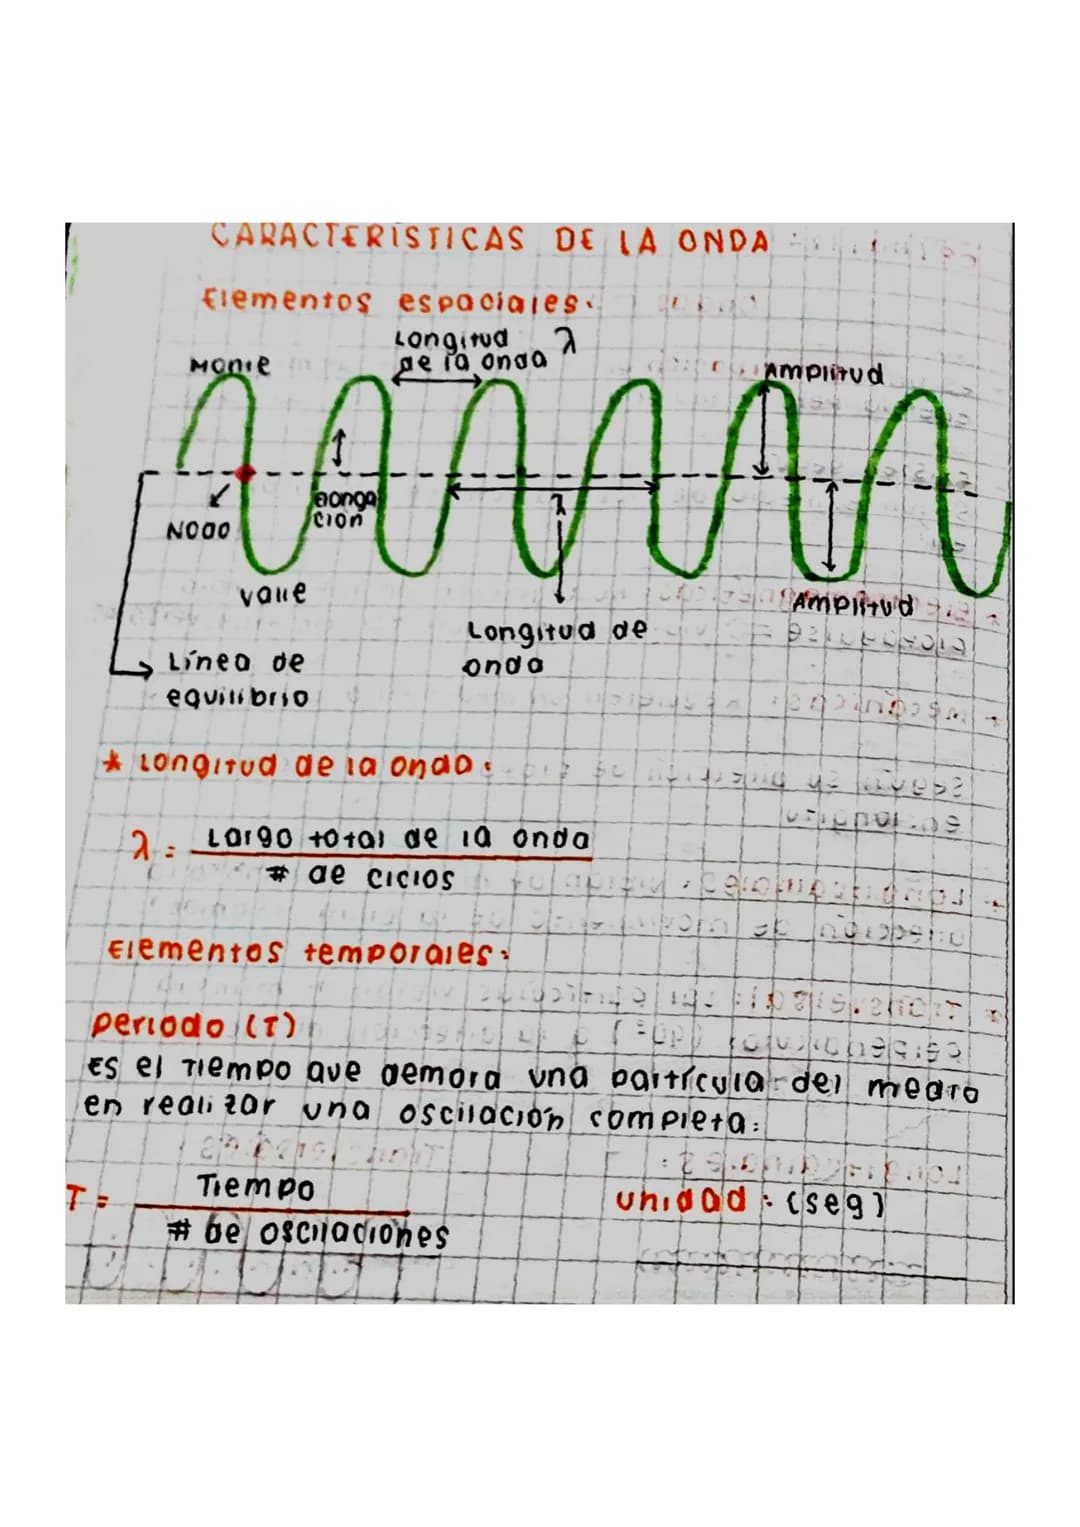 CARACTERÍSTICAS DE LA ONDA
Elementos espaciales:
Longitud λ
de la onda
Monte
Amplitud
Elonga
ción
Nodo
Valle
λ
Amplitud
Longitud de
onda
Línea de
equilibrio
* Longitud de la onda:
λ = Largo total de la onda
# de ciclos
Elementos temporales:
Periodo (T)
Es el tiempo que demora una partícula del medio
en realizar una oscilación completa.
T = Tiempo
# de oscilaciones
unidad : (seg)